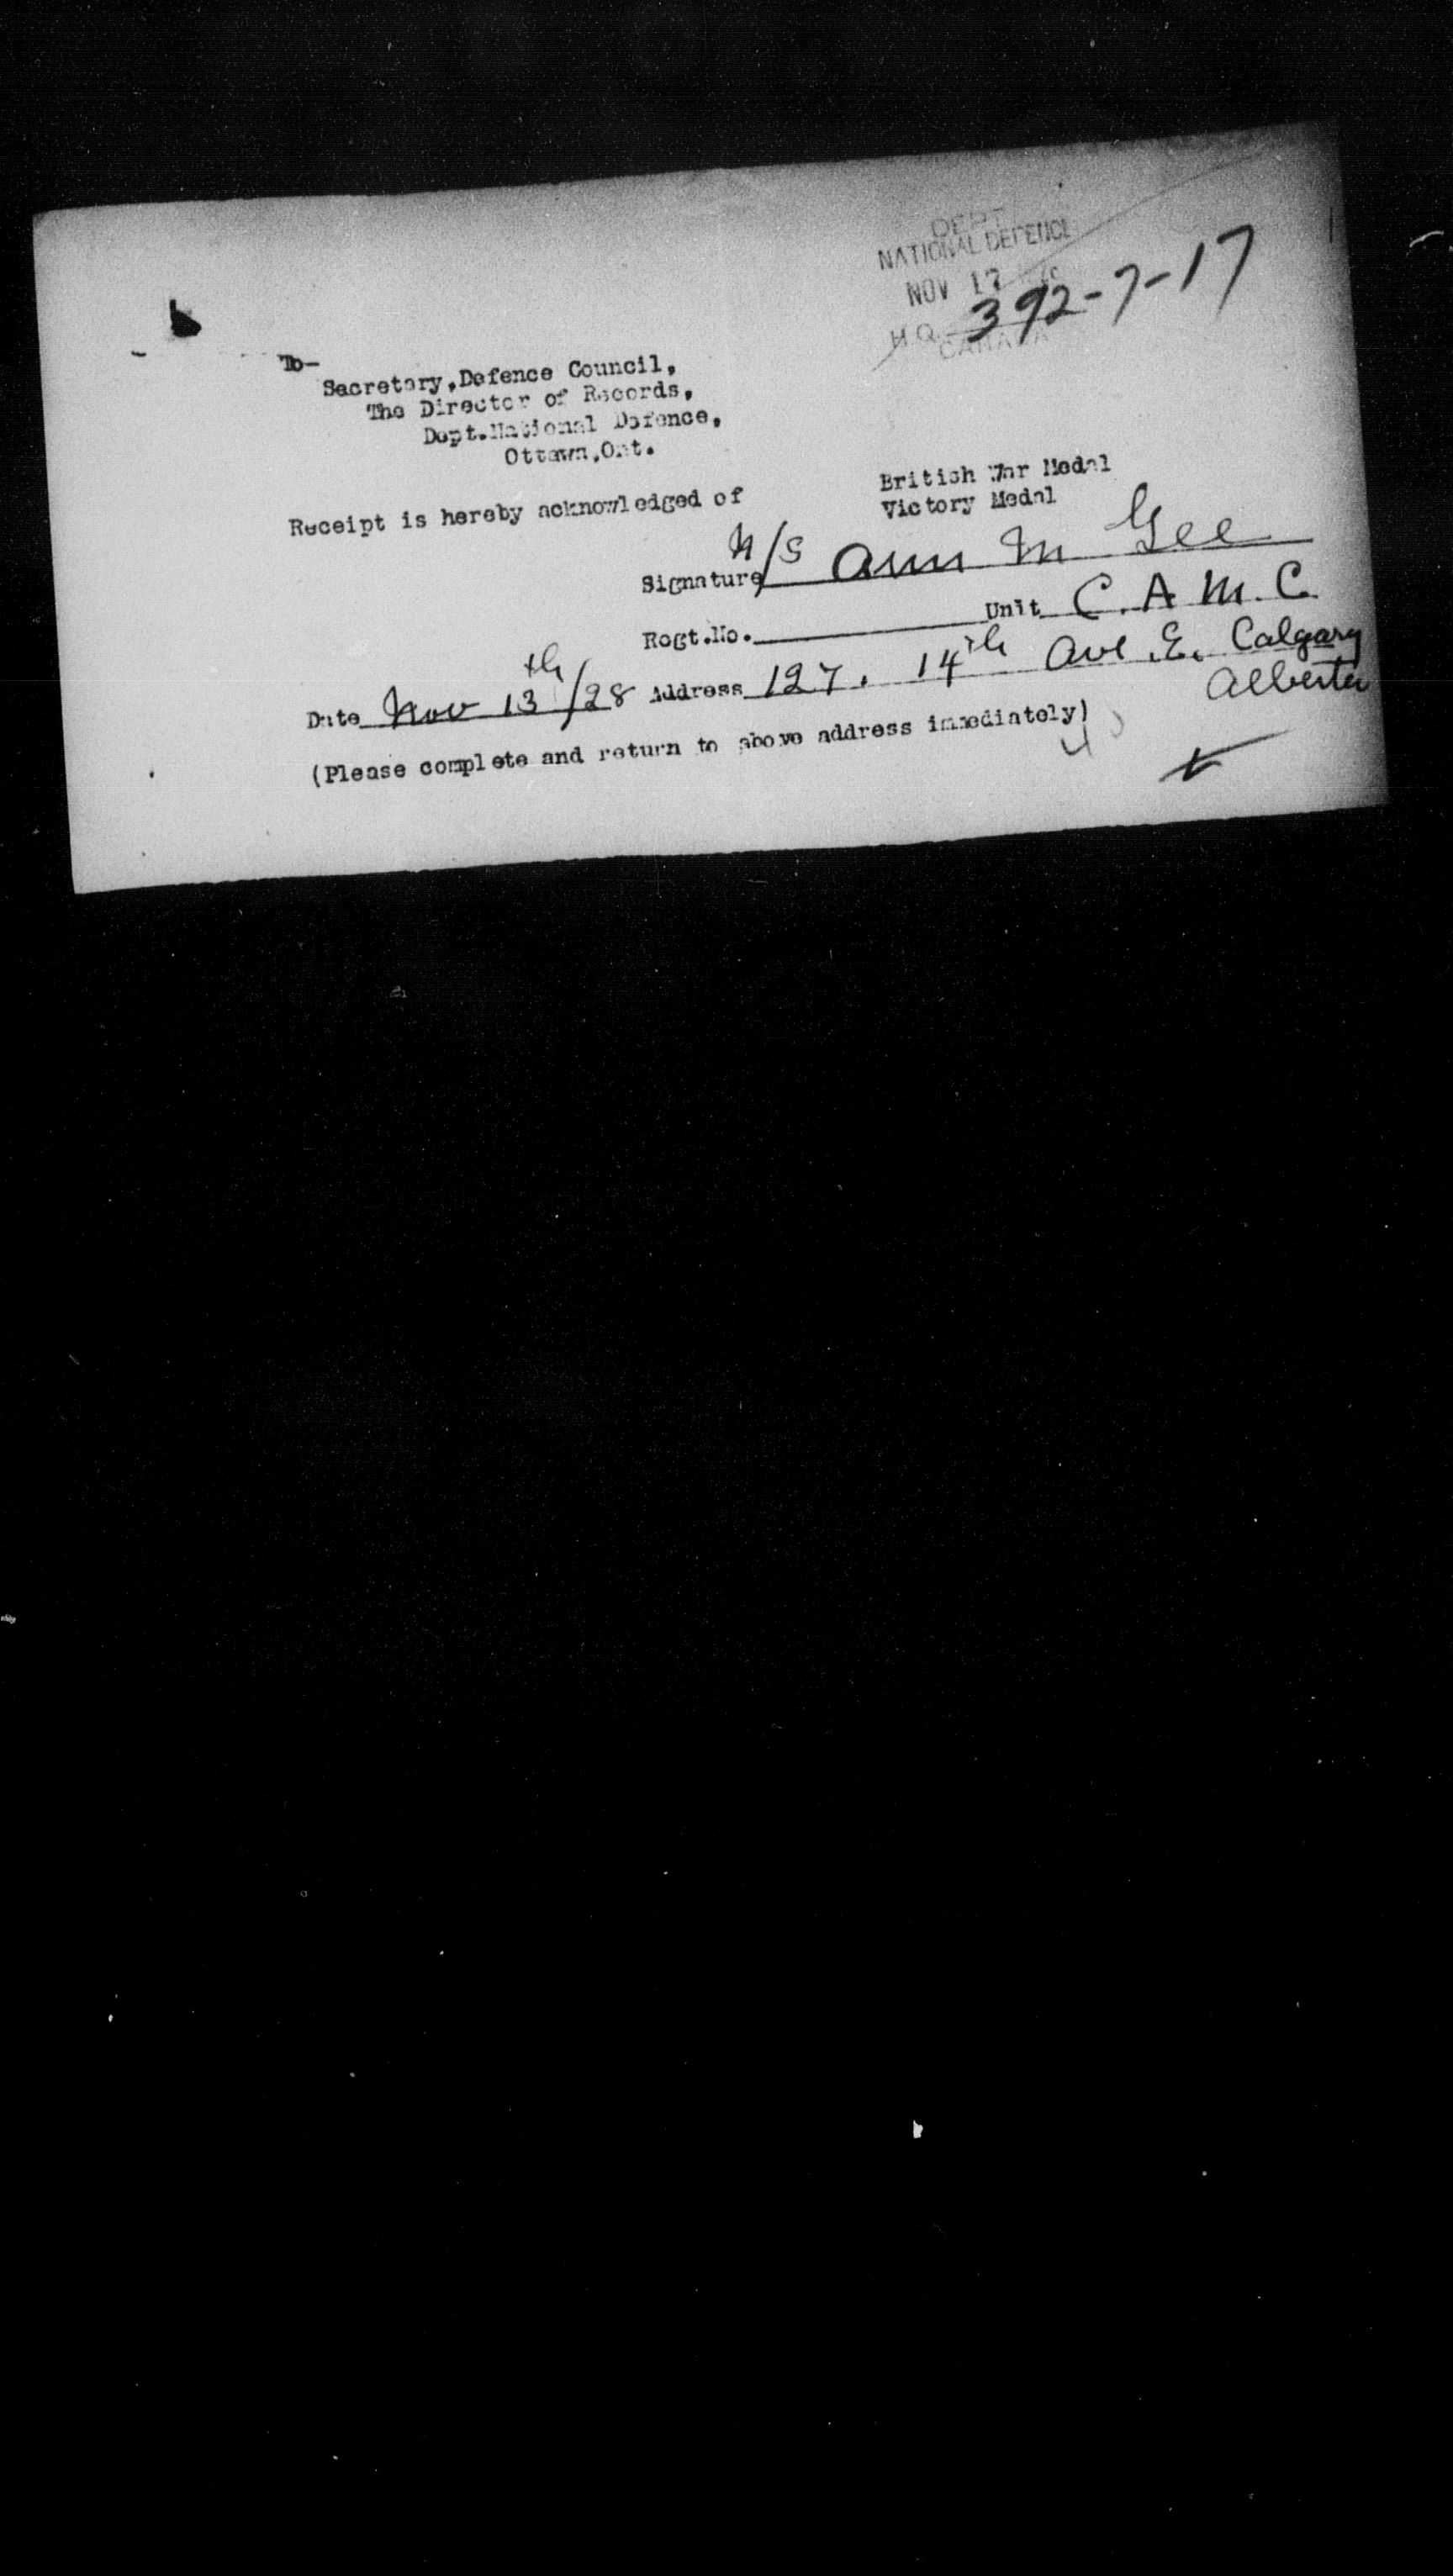 DEPT.
NATIONAL DEFENCE
NOV 17
H.Q. 392-7-17
CANADA
To-
Secretary, Defence Council,
The Director of Records,
Dept. National Defence,
Ottawa, Ont.
Receipt is hereby acknowledged of
British War Medal
Victory Medal
Signature N/S Ann M Gee
Regt. No. Unit C. A. M. C.
Date Nov 13th/28 Address 127. 14th Ave. E. Calgary
Alberta
(Please complete and return to above address immediately)